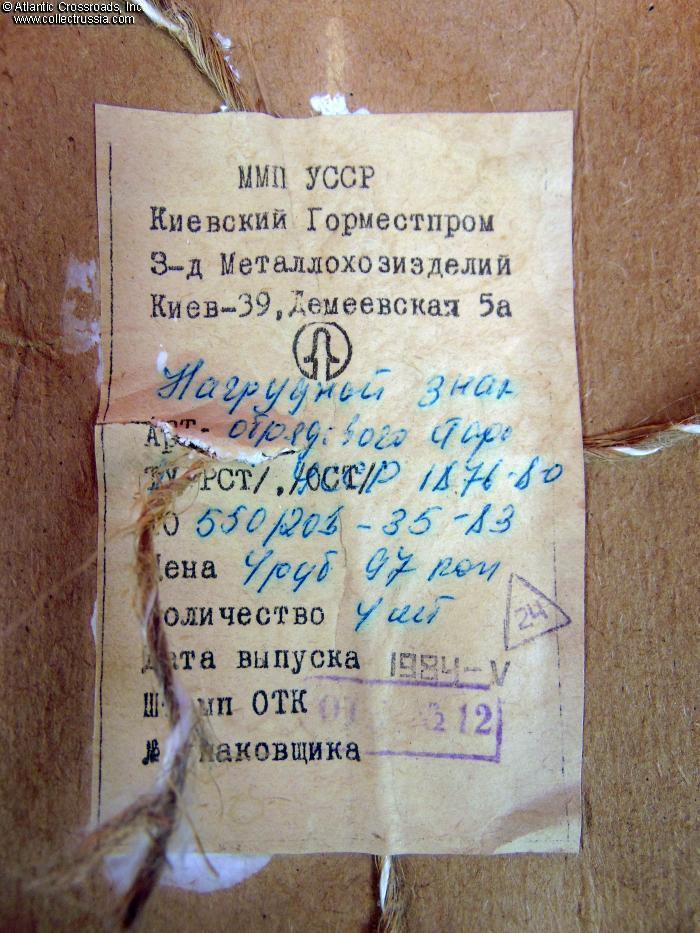 © Atlantic Crossroads, Inc.
www.collectrussia.com
ММП УССР
Киевский Горместпром
З-д Металлохозизделий
Киев-39, Демеевская 5а
Нагрудной знак
Арт. обрядового
РСТ/, /ОСТ/ УССР 1876-80
550/203-35-83
Цена 4 руб 97 коп
Количество 1 шт
Дата выпуска 1984-V
24
Штамп ОТК
ОТК 12
№ упаковщика